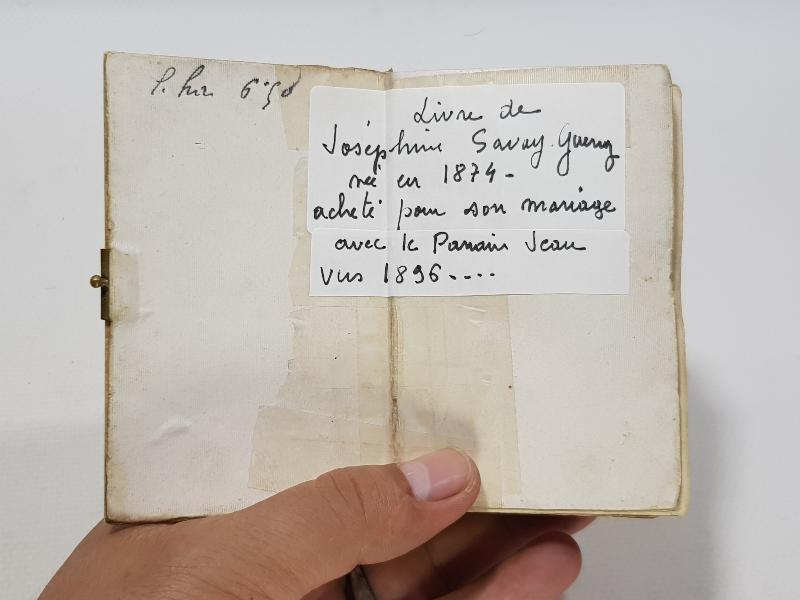 Livre de
Joséphine Savoy. Guerraz
née en 1874 -
acheté pour son mariage
avec le Parrain Jean
vers 1896....